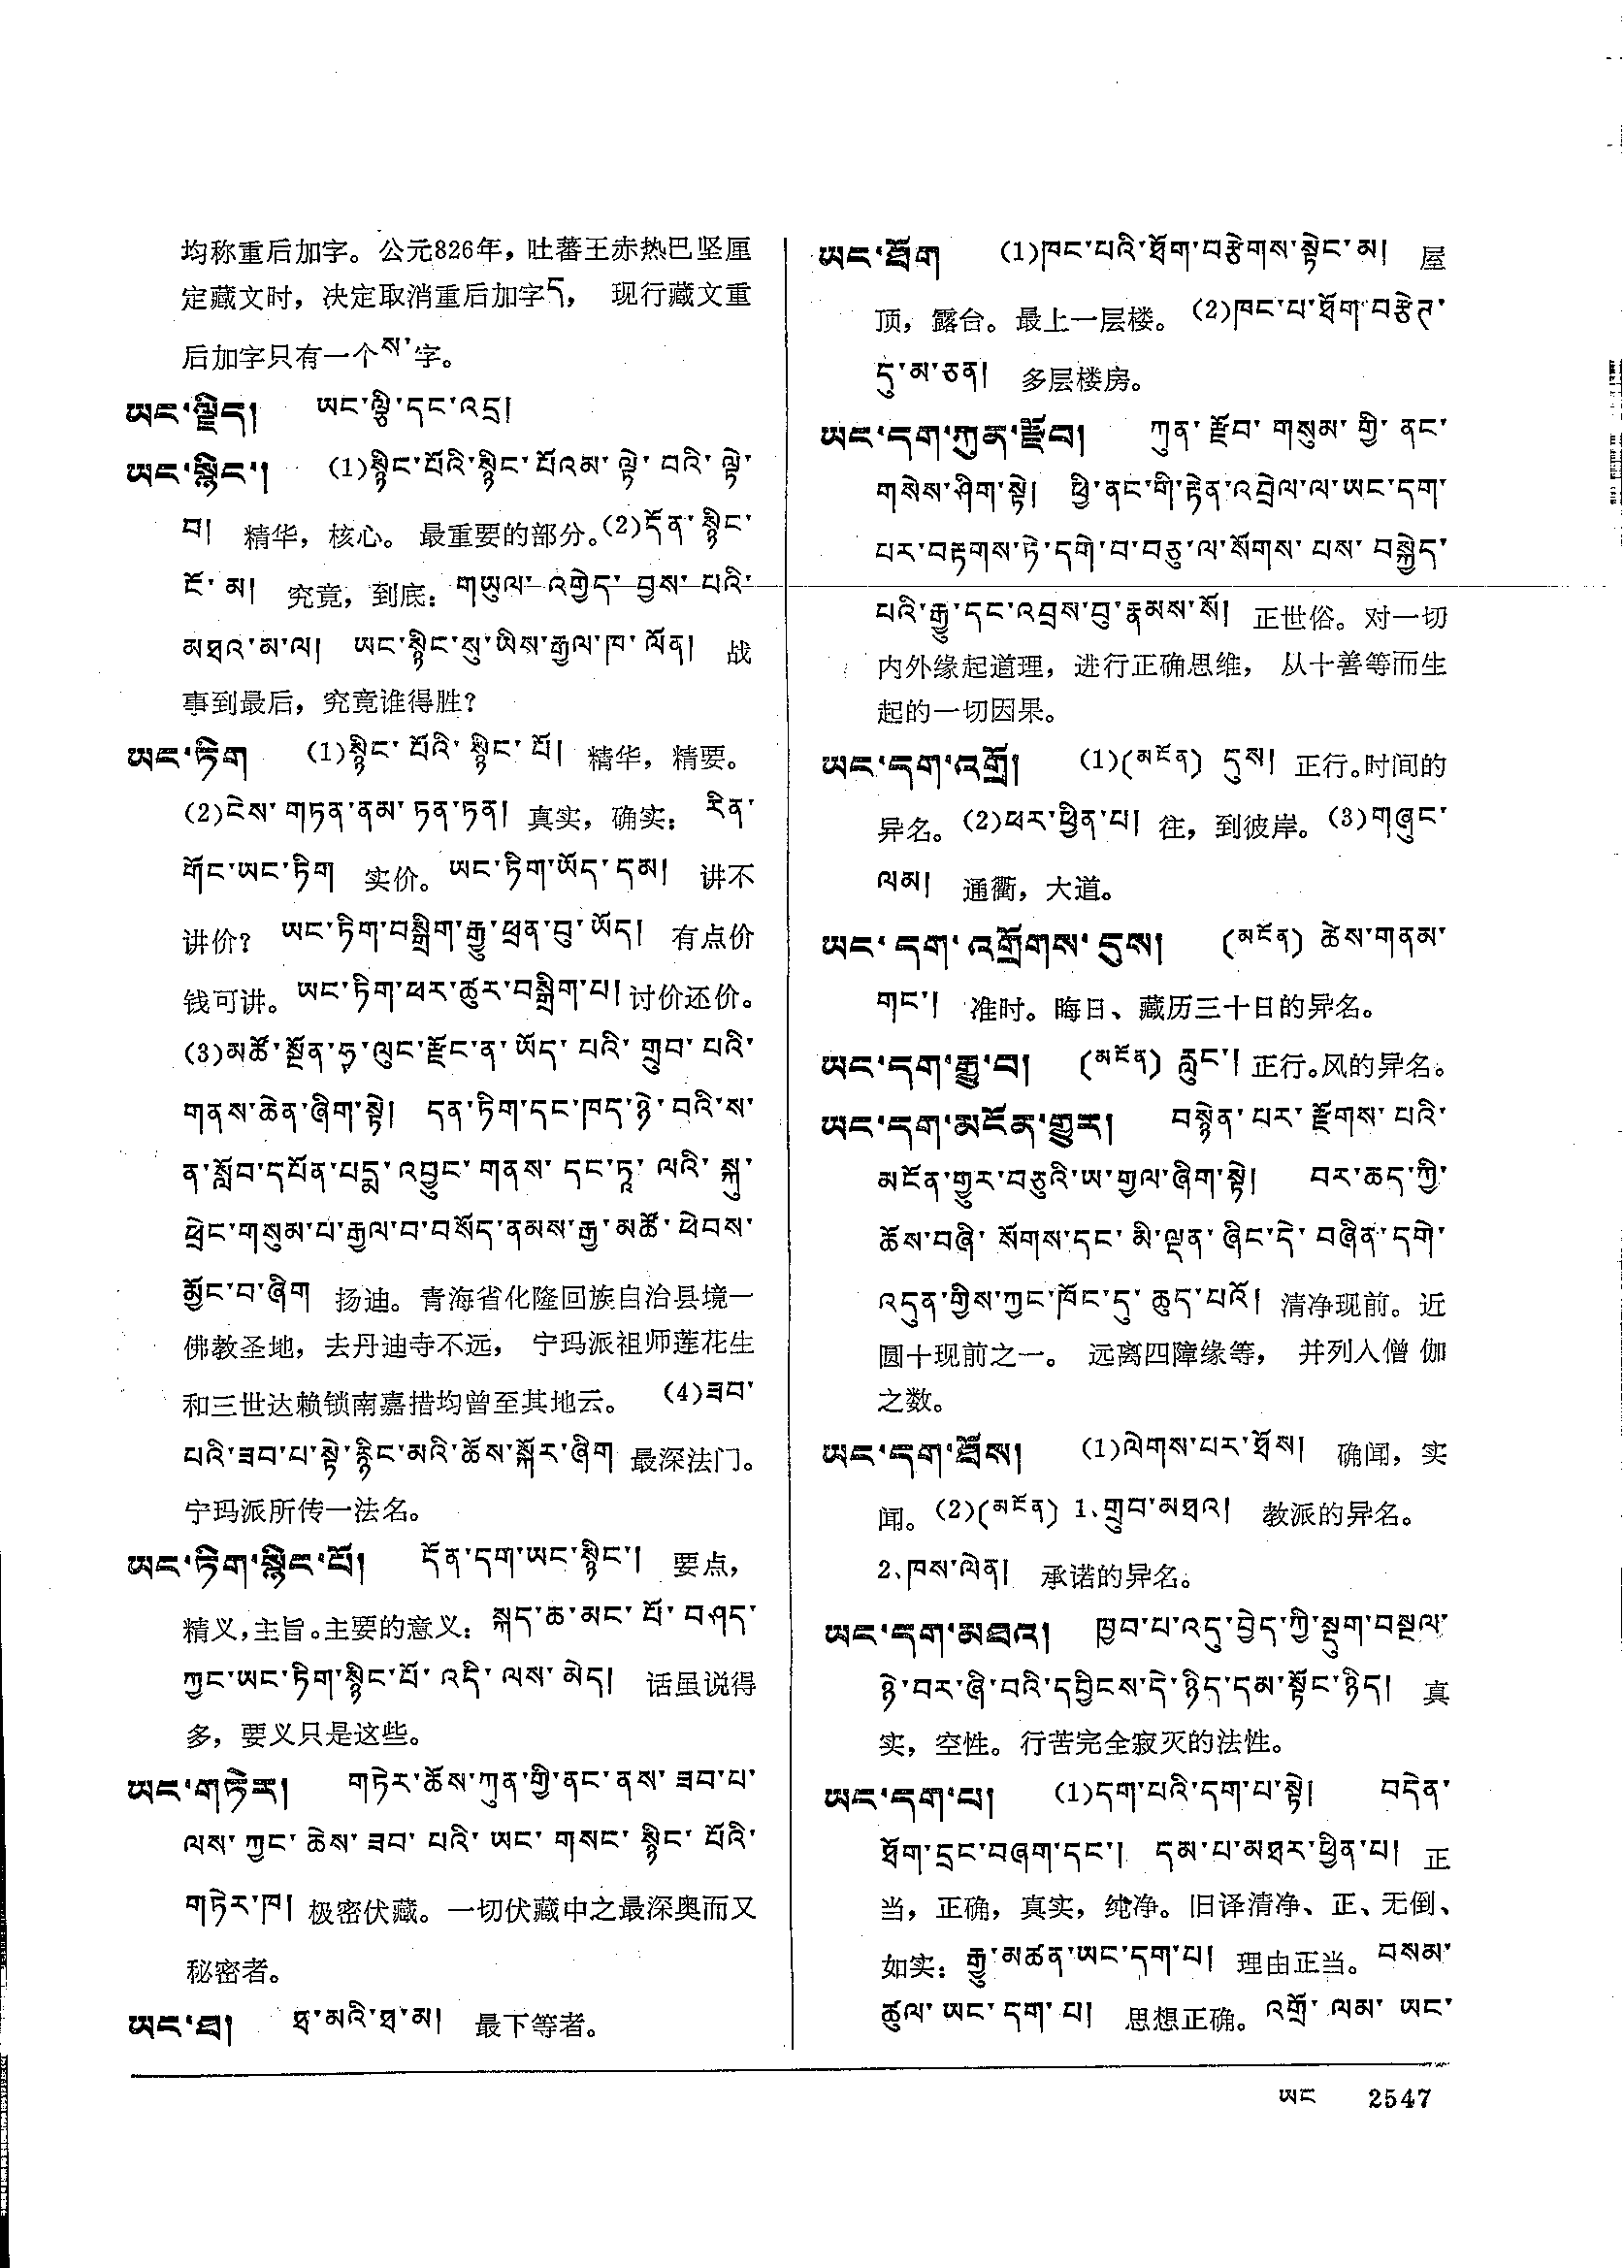 均称重后加字。公元826年，吐蕃王赤热巴坚厘
定藏文时，决定取消重后加字ད， 现行藏文重
后加字只有一个ས་字。
ཡང་ལྗིད། ཡང་ལྕི་དང་འདྲ།
ཡང་སྙིང་། (1)སྙིང་པོའི་སྙིང་པོའམ་ལྟེ་བའི་ལྟེ་
བ། 精华，核心。最重要的部分。(2)དོན་སྙིང་
ངོ་མ། 究竟，到底：གཡུལ་འགྱེད་བྱས་པའི་
མཐའ་མ་ལ། ཡང་སྙིང་སུ་ཡིས་རྒྱལ་ཁ་ལོན། 战
事到最后，究竟谁得胜？
ཡང་ཏིག (1)སྙིང་པོའི་སྙིང་པོ། 精华，精要。
(2)ངེས་གཏན་ནམ་ཏན་ཏན། 真实，确实：རིན་
གོང་ཡང་ཏིག 实价。ཡང་ཏིག་ཡོད་དམ། 讲不
讲价？ ཡང་ཏིག་བསྒྲིག་རྒྱུ་ཕྲན་བུ་ཡོད། 有点价
钱可讲。ཡང་ཏིག་ཕར་ཚུར་བསྒྲིག་པ། 讨价还价。
(3)མཚོ་སྔོན་ཧྭ་ལུང་རྫོང་ན་ཡོད་པའི་གྲུབ་པའི་
གནས་ཆེན་ཞིག་སྟེ། དན་ཏིག་དང་ཁད་ཉེ་བའི་ས་
ན་སློབ་དཔོན་པདྨ་འབྱུང་གནས་དང་ཏཱ་ལའི་སྐུ་
ཕྲེང་གསུམ་པ་རྒྱལ་བ་བསོད་ནམས་རྒྱ་མཚོ་ཕེབས་
མྱོང་བ་ཞིག 扬迪。青海省化隆回族自治县境一
佛教圣地，去丹迪寺不远， 宁玛派祖师莲花生
和三世达赖锁南嘉措均曾至其地云。 (4)ཟབ་
པའི་ཟབ་པ་སྟེ་རྙིང་མའི་ཆོས་སྐོར་ཞིག 最深法门。
宁玛派所传一法名。
ཡང་ཏིག་སྙིང་པོ། དོན་དག་ཡང་སྙིང་། 要点，
精义，主旨。主要的意义：སྐད་ཆ་མང་པོ་བཤད་
ཀྱང་ཡང་ཏིག་སྙིང་པོ་འདི་ལས་མེད། 话虽说得
多，要义只是这些。
ཡང་གཏེར། གཏེར་ཆོས་ཀུན་གྱི་ནང་ནས་ཟབ་པ་
ལས་ཀྱང་ཆེས་ཟབ་པའི་ཡང་གསང་སྙིང་པོའི་
གཏེར་ཁ། 极密伏藏。一切伏藏中之最深奥而又
秘密者。
ཡང་ཐ། ཐ་མའི་ཐ་མ། 最下等者。
ཡང་ཐོག (1)ཁང་པའི་ཐོག་བརྩེགས་སྟེང་མ། 屋
顶，露台。最上一层楼。(2)ཁང་པ་ཐོག་བརྩེཊ་
དུ་མ་ཅན། 多层楼房。
ཡང་དག་ཀུན་རྫོབ། ཀུན་རྫོབ་གསུམ་གྱི་ནང་
གསེས་ཤིག་སྟེ། ཕྱི་ནང་གི་རྟེན་འབྲེལ་ལ་ཡང་དག་
པར་བརྟགས་ཏེ་དགེ་བ་བཅུ་ལ་སོགས་པས་བསྐྱེད་
པའི་རྒྱུ་དང་འབྲས་བུ་རྣམས་སོ། 正世俗。对一切
内外缘起道理，进行正确思维， 从十善等而生
起的一切因果。
ཡང་དག་འགྲོ། (1)(མངོན) དུས། 正行。时间的
异名。(2)ཕར་ཕྱིན་པ། 往，到彼岸。(3)གཞུང་
ལམ། 通衢，大道。
ཡང་དག་འགྲོགས་དུས། (མངོན) ཚེས་གནམ་
གང་། 准时。晦日、藏历三十日的异名。
ཡང་དག་རྒྱུ་བ། (མངོན) རླུང་། 正行。风的异名。
ཡང་དག་མངོན་གྱུར། བསྙེན་པར་རྫོགས་པའི་
མངོན་གྱུར་བཅུའི་ཨ་གྱལ་ཞིག་སྟེ། བར་ཆད་ཀྱི་
ཆོས་བཞི་སོགས་དང་མི་ལྡན་ཞིང་དེ་བཞིན་དགེ་
འདུན་གྱིས་ཀྱང་ཁོང་དུ་ཆུད་པའོ། 清净现前。近
圆十现前之一。 远离四障缘等， 并列入僧伽
之数。
ཡང་དག་ཐོས། (1)ལེགས་པར་ཐོས། 确闻，实
闻。(2)(མངོན) 1、གྲུབ་མཐའ། 教派的异名。
2、ཁས་ལེན། 承诺的异名。
ཡང་དག་མཐའ། ཁྱབ་པ་འདུ་བྱེད་ཀྱི་སྡུག་བསྔལ་
ཉེ་བར་ཞི་བའི་དབྱིངས་དེ་ཉིད་དམ་སྟོང་ཉིད། 真
实，空性。行苦完全寂灭的法性。
ཡང་དག་པ། (1)དག་པའི་དག་པ་སྟེ། བདེན་
ཐོག་དྲང་བཞག་དང་། དམ་པ་མཐར་ཕྱིན་པ། 正
当，正确，真实，纯净。旧译清净、正、无倒、
如实：རྒྱུ་མཚན་ཡང་དག་པ། 理由正当。བསམ་
ཚུལ་ཡང་དག་པ། 思想正确。འགྲོ་ལམ་ཡང་
ཡང 2547